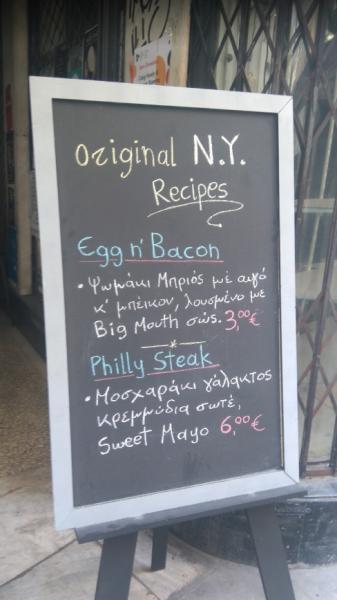 Original N.Y.
Recipes
Egg n' Bacon
• Ψωμάκι Μπριός με αυγό
κ' μπέικον, λουσμένο με
Big Mouth σως. 3,00€
Philly Steak
• Μοσχαράκι γάλακτος
κρεμμύδια σωτέ,
Sweet Mayo 6,00€